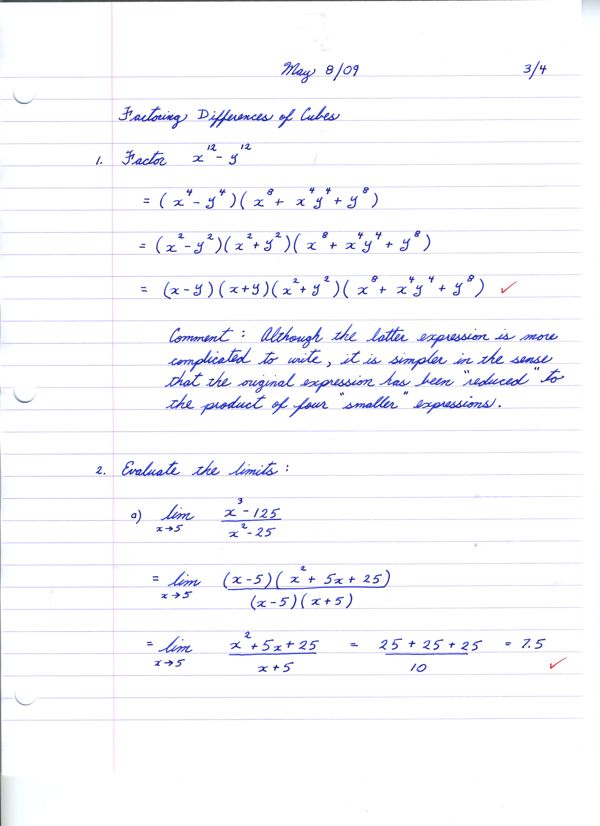 May 8/09 3/4
Factoring Differences of Cubes
1. Factor x¹² - y¹²
= (x⁴ - y⁴)(x⁸ + x⁴y⁴ + y⁸)
= (x² - y²)(x² + y²)(x⁸ + x⁴y⁴ + y⁸)
= (x - y)(x + y)(x² + y²)(x⁸ + x⁴y⁴ + y⁸) ✓
Comment : Although the latter expression is more
complicated to write, it is simpler in the sense
that the original expression has been "reduced" to
the product of four "smaller" expressions.
2. Evaluate the limits :
a) lim x→5 (x³ - 125)/(x² - 25)
= lim x→5 (x - 5)(x² + 5x + 25)/(x - 5)(x + 5)
= lim x→5 (x² + 5x + 25)/(x + 5) = (25 + 25 + 25)/10 = 7.5 ✓